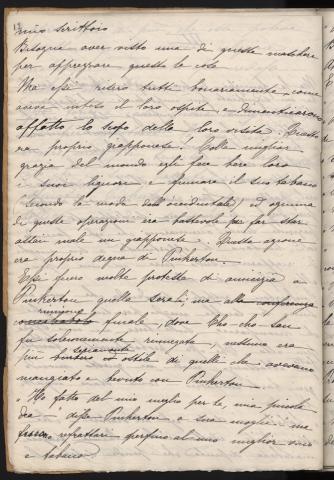 mio scrittoio
Bisogna aver visto una di queste maschere
per apprezzare queste le cose
Ma essi risero tutti bonariamente, come
aveva inteso il loro ospite, e dimenticarono
affatto lo scopo della loro visita. Questa
era proprio giapponese! Colla miglior
grazia del mondo egli fece bere loro
i suoi liquori e fumare il suo tabacco
(secondo la moda dell'occidentale) ed ognuna
di queste operazioni era bastevole per far star
assai male un giapponese. Questa azione
era proprio degna di Pinkerton.
Essi fecero molte proteste di amicizia a
Pinkerton quella sera; ma alla conferenza
riunione
finale, dove Cho-cho-san
fu solennemente rinnegata, nessuno era
seriamente
più ostile di quelli che avevano
mangiato e bevuto con Pinkerton.
"Ho fatto del mio meglio per te, mia piccola
dea - disse Pinkerton a sua moglie - ma
refrattari perfino al mio miglior vino
e tabacco